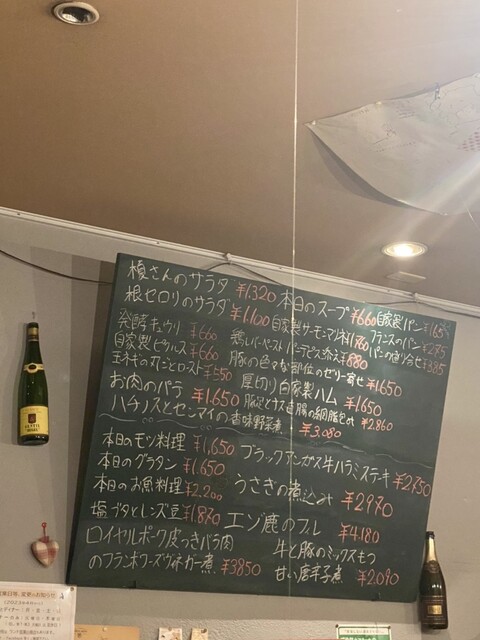 榎さんのサラダ ¥1,320
根セロリのサラダ ¥1,100
発酵キュウリ ¥660
自家製ピクルス ¥660
玉ネギの丸ごとロースト ¥550
お肉のパテ ¥1,650
ハチノスとセンマイの香味野菜煮 ¥1,650
本日のスープ ¥660
自家製サーモンマリネ
鶏レバーペースト パンデピス添え ¥880
豚の色々な部位のゼリー寄せ ¥1,650
厚切り自家製ハム ¥1,650
¥2,860
¥3,080
自家製パン ¥165
フランスのパン ¥275
パンの盛り合せ ¥385
本日のモツ料理 ¥1,650
本日のグラタン ¥1,650
本日のお魚料理 ¥2,200
塩ブタとレンズ豆 ¥1,870
ロイヤルポーク皮つきバラ肉
のフランボワーズヴィネガー煮 ¥3850
ブラックアンガス牛ハラミステキ ¥2750
うさぎの煮込み ¥2970
エゾ鹿の ¥4180
牛と豚のミックスモツ
甘い唐辛子煮 ¥2,090